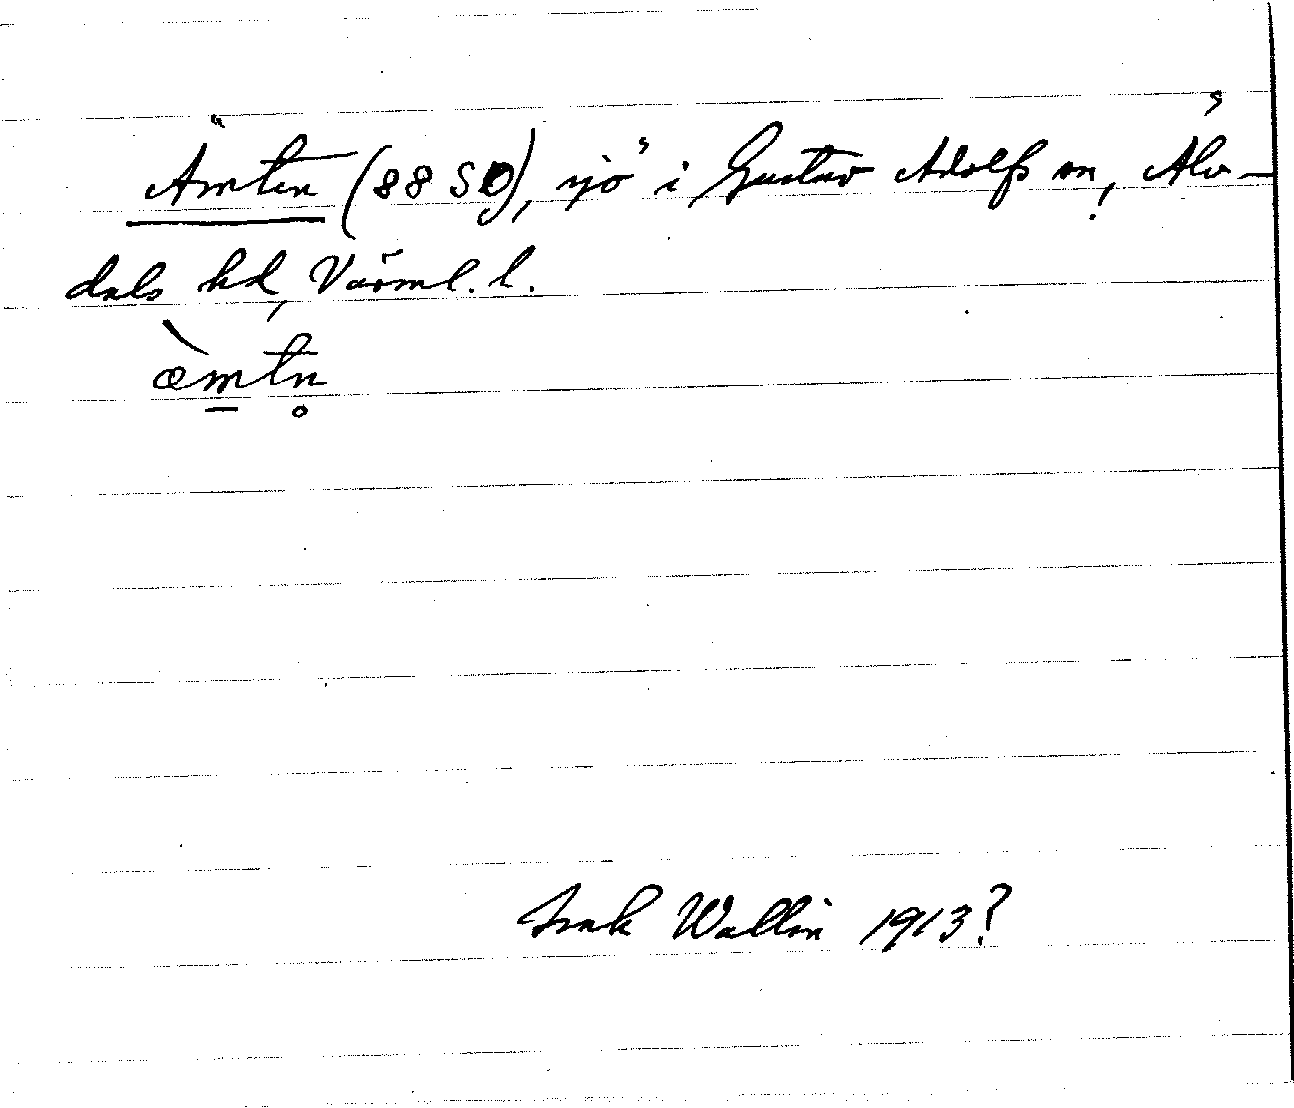 Ämten (88 SO), sjö i Gustav Adolfs sn, Älv-
dals hd, Värml. l.
æ̀m̲tn̥
Isak Wallin 1913?